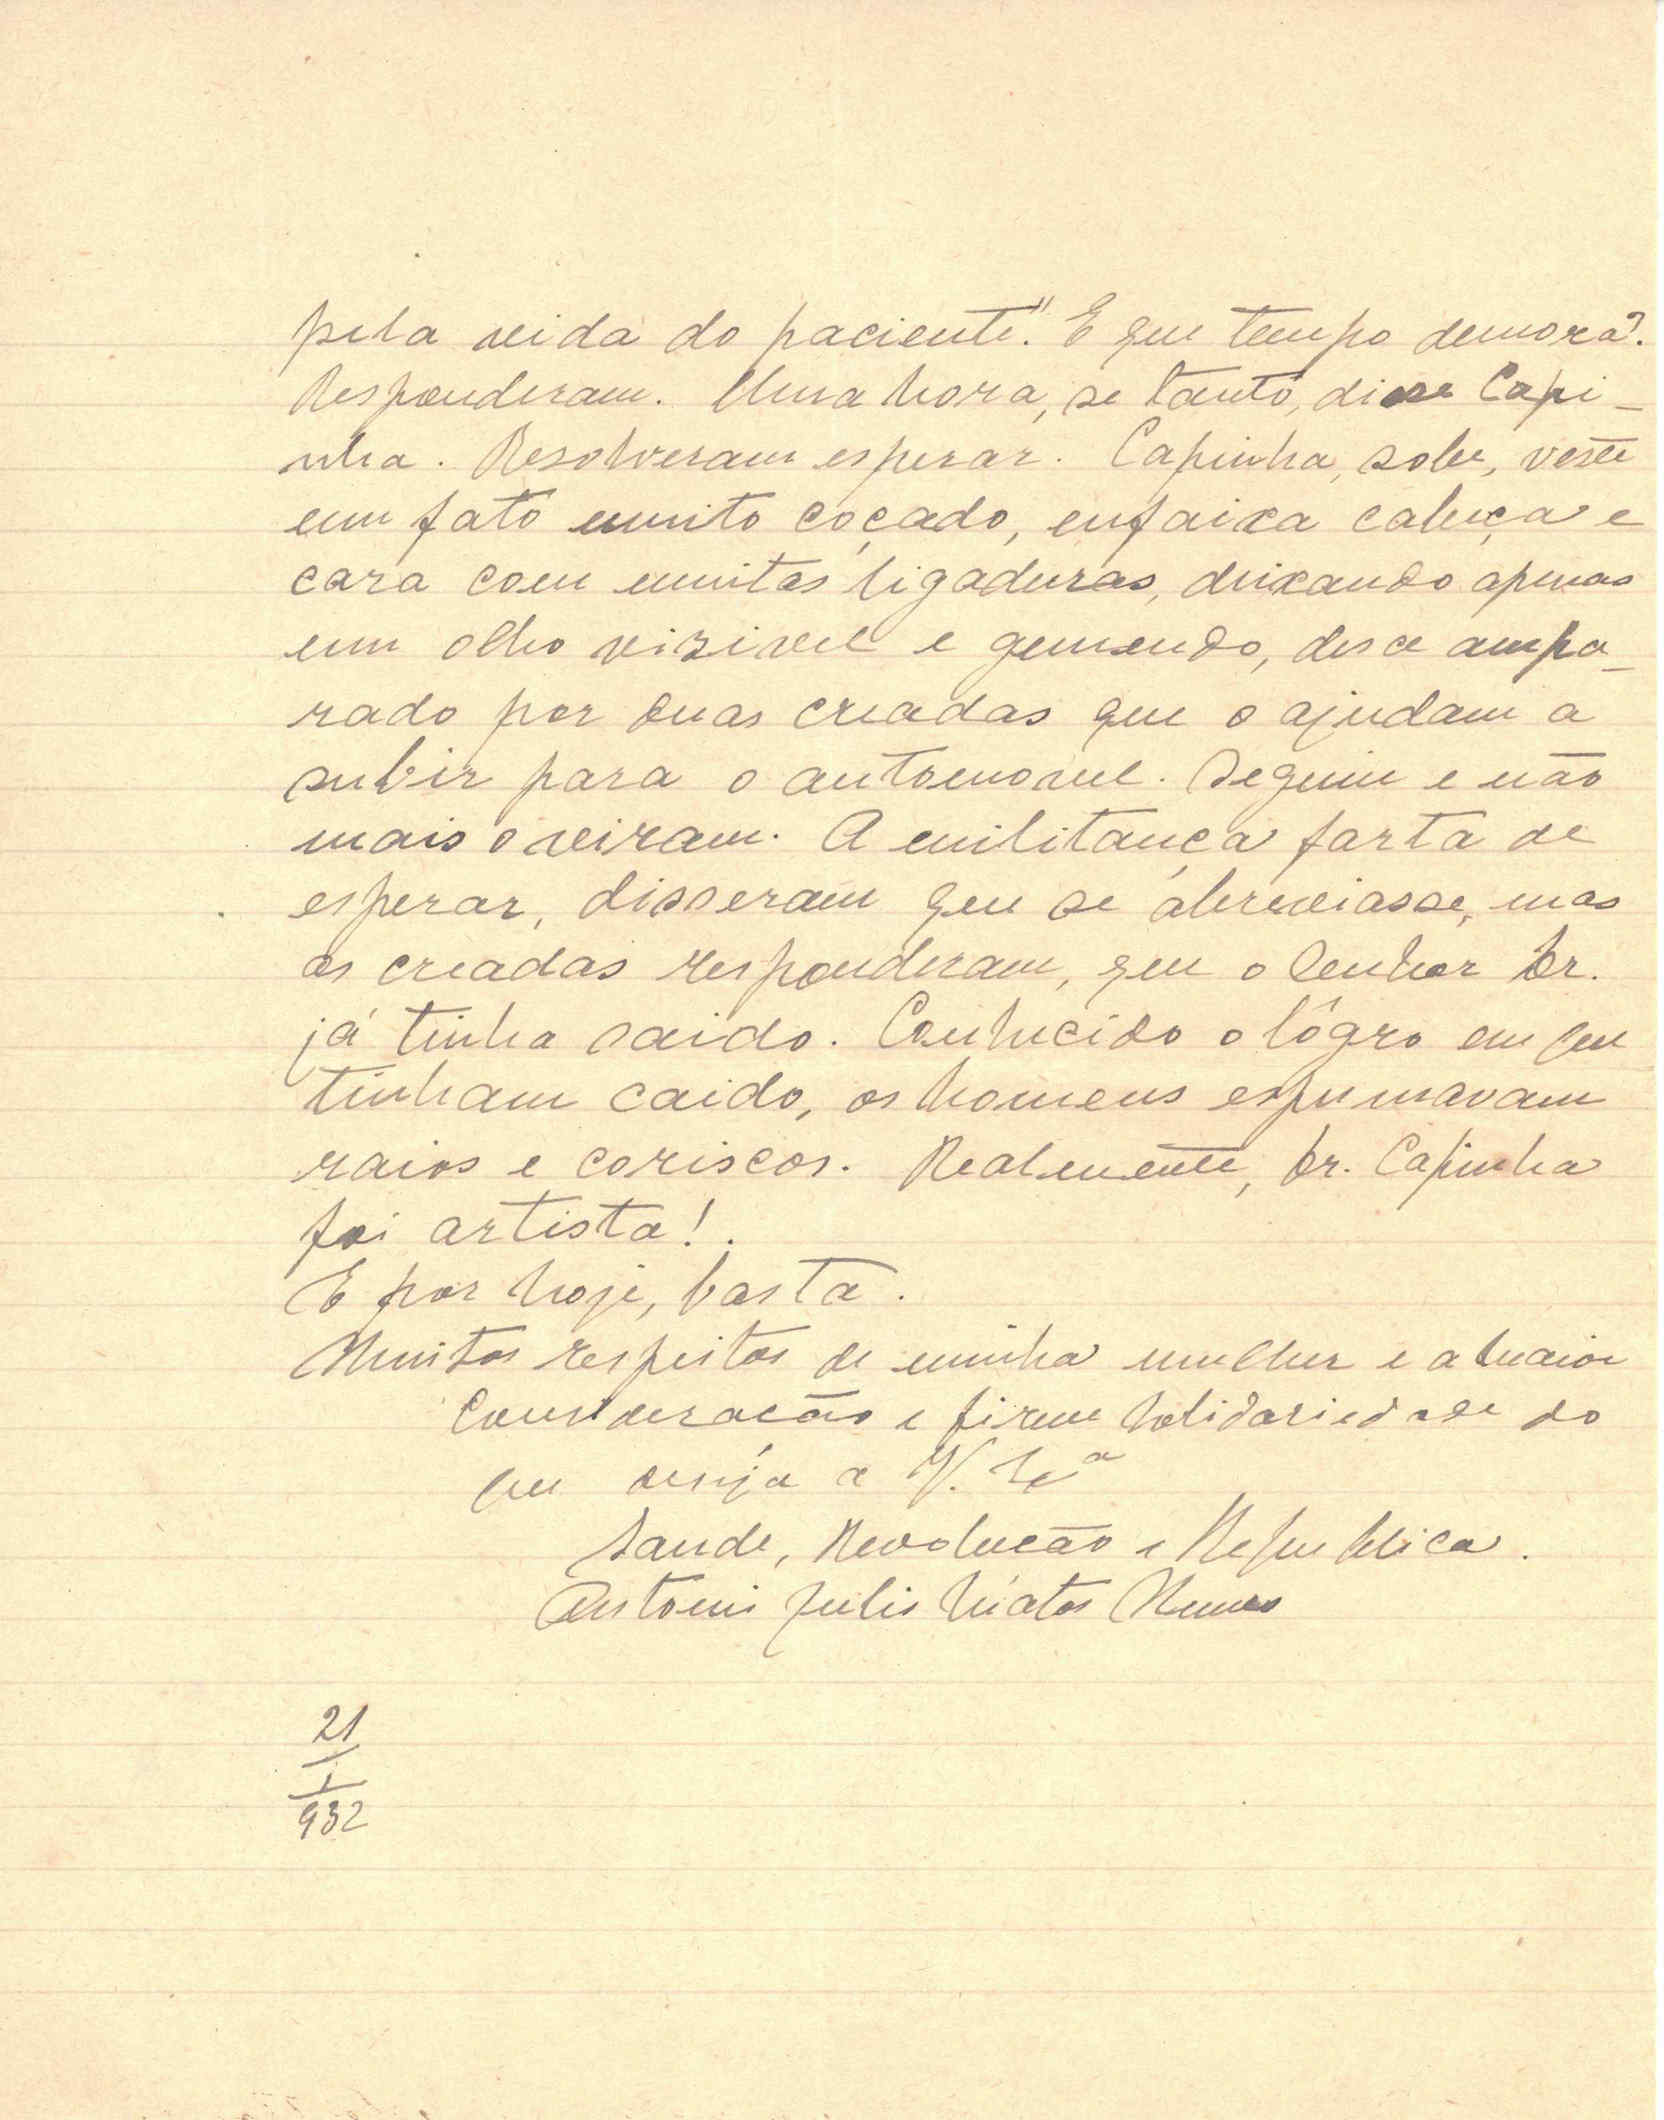 pela vida do paciente". E que tempo demora?
Responderam. Uma hora, se tanto, disse Capi-
nha. Resolveram esperar. Capinha, sobe, veste
um fato muito coçado, enfaixa cabeça e
cara com muitas ligaduras, deixando apenas
um olho visivel e gemendo, desce ampa-
rado por duas creadas que o ajudam a
subir para o automovel. Seguiu e não
mais o viram. A militança farta de
esperar, disseram que se abreviasse, mas
as creadas responderam, que o Senhor Dr.
já tinha saido. Conhecido o lôgro em que
tinham caido, os homens espumavam
raios e coriscos. Realmente, Dr. Capinha
foi artista!.
E por hoje, basta.
Muitos respeitos de minha mulher e a maior
consideracão e firme solidariedade do
que deseja a V. Exª
Saude, Revolucão e Republica.
Antonio Julio Matos Nunes
21
1
932